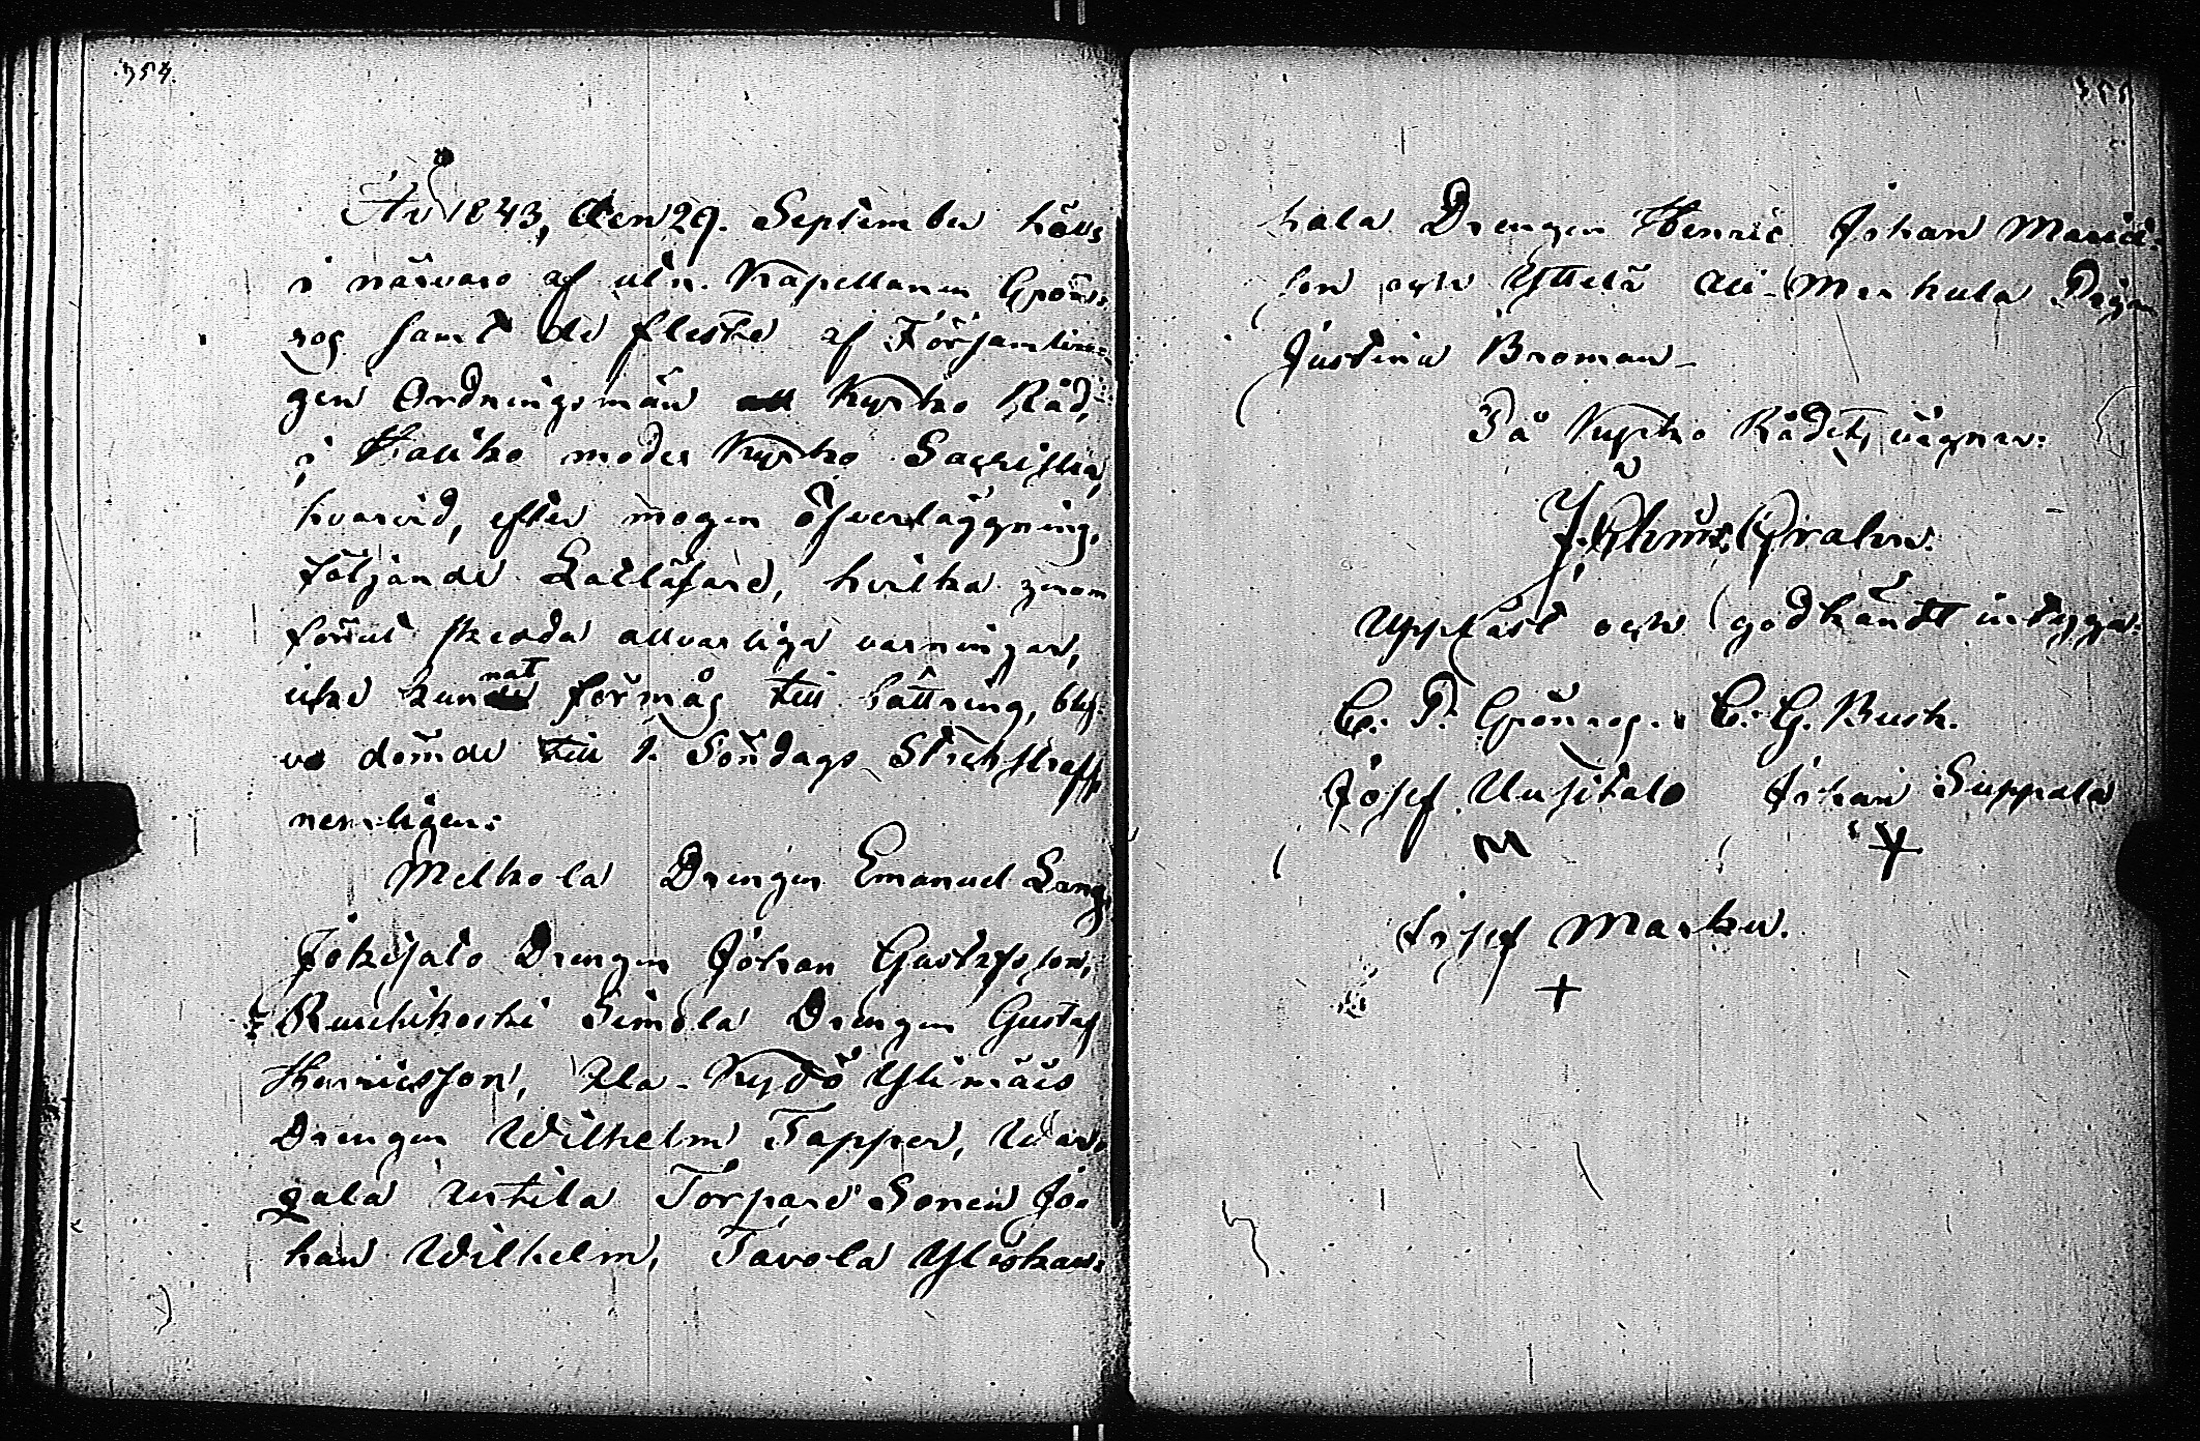 354.
År 1843, den 29. September hölls
i närvaro af utn. Kapellanen Grön-
rog samt de fleste af Församlin-
gen Ordningsmän Kyrko Råd,
i Haliko moder Kyrko Sacristia,
hvarvid, efter mogen öfverläggning,
följande Lättläsare, hvilka genom
förut skedda allvarliga varningar,
icke kunnat förmås till bättring, blef-
vo dömde till 1. Söndags Stockstraff,
nemligen:
Melkola Drengen Emanuel Lang,
Jokisalo Drengen Johan Gustafsson,
Ruskikoski Simola Drengen Gustaf
Henricsson, Ala-Kyttö Ylimäis
Drengen Wilhelm Tapper, Was-
gala Torpare Sonen Jo-
han Wilhelm, Tavola Yliskau-
355
kala Drengen Henric Johan Maria
son och Ytteltä Ali-Markula Pigan
Justina Broman
På Kyrko Rådets vägnar:
Uppläst och godkändt intyga:
C. P. Grönrog. C. G. Busk.
Josef Uusitalo Johan Suppala
Josef Marku.